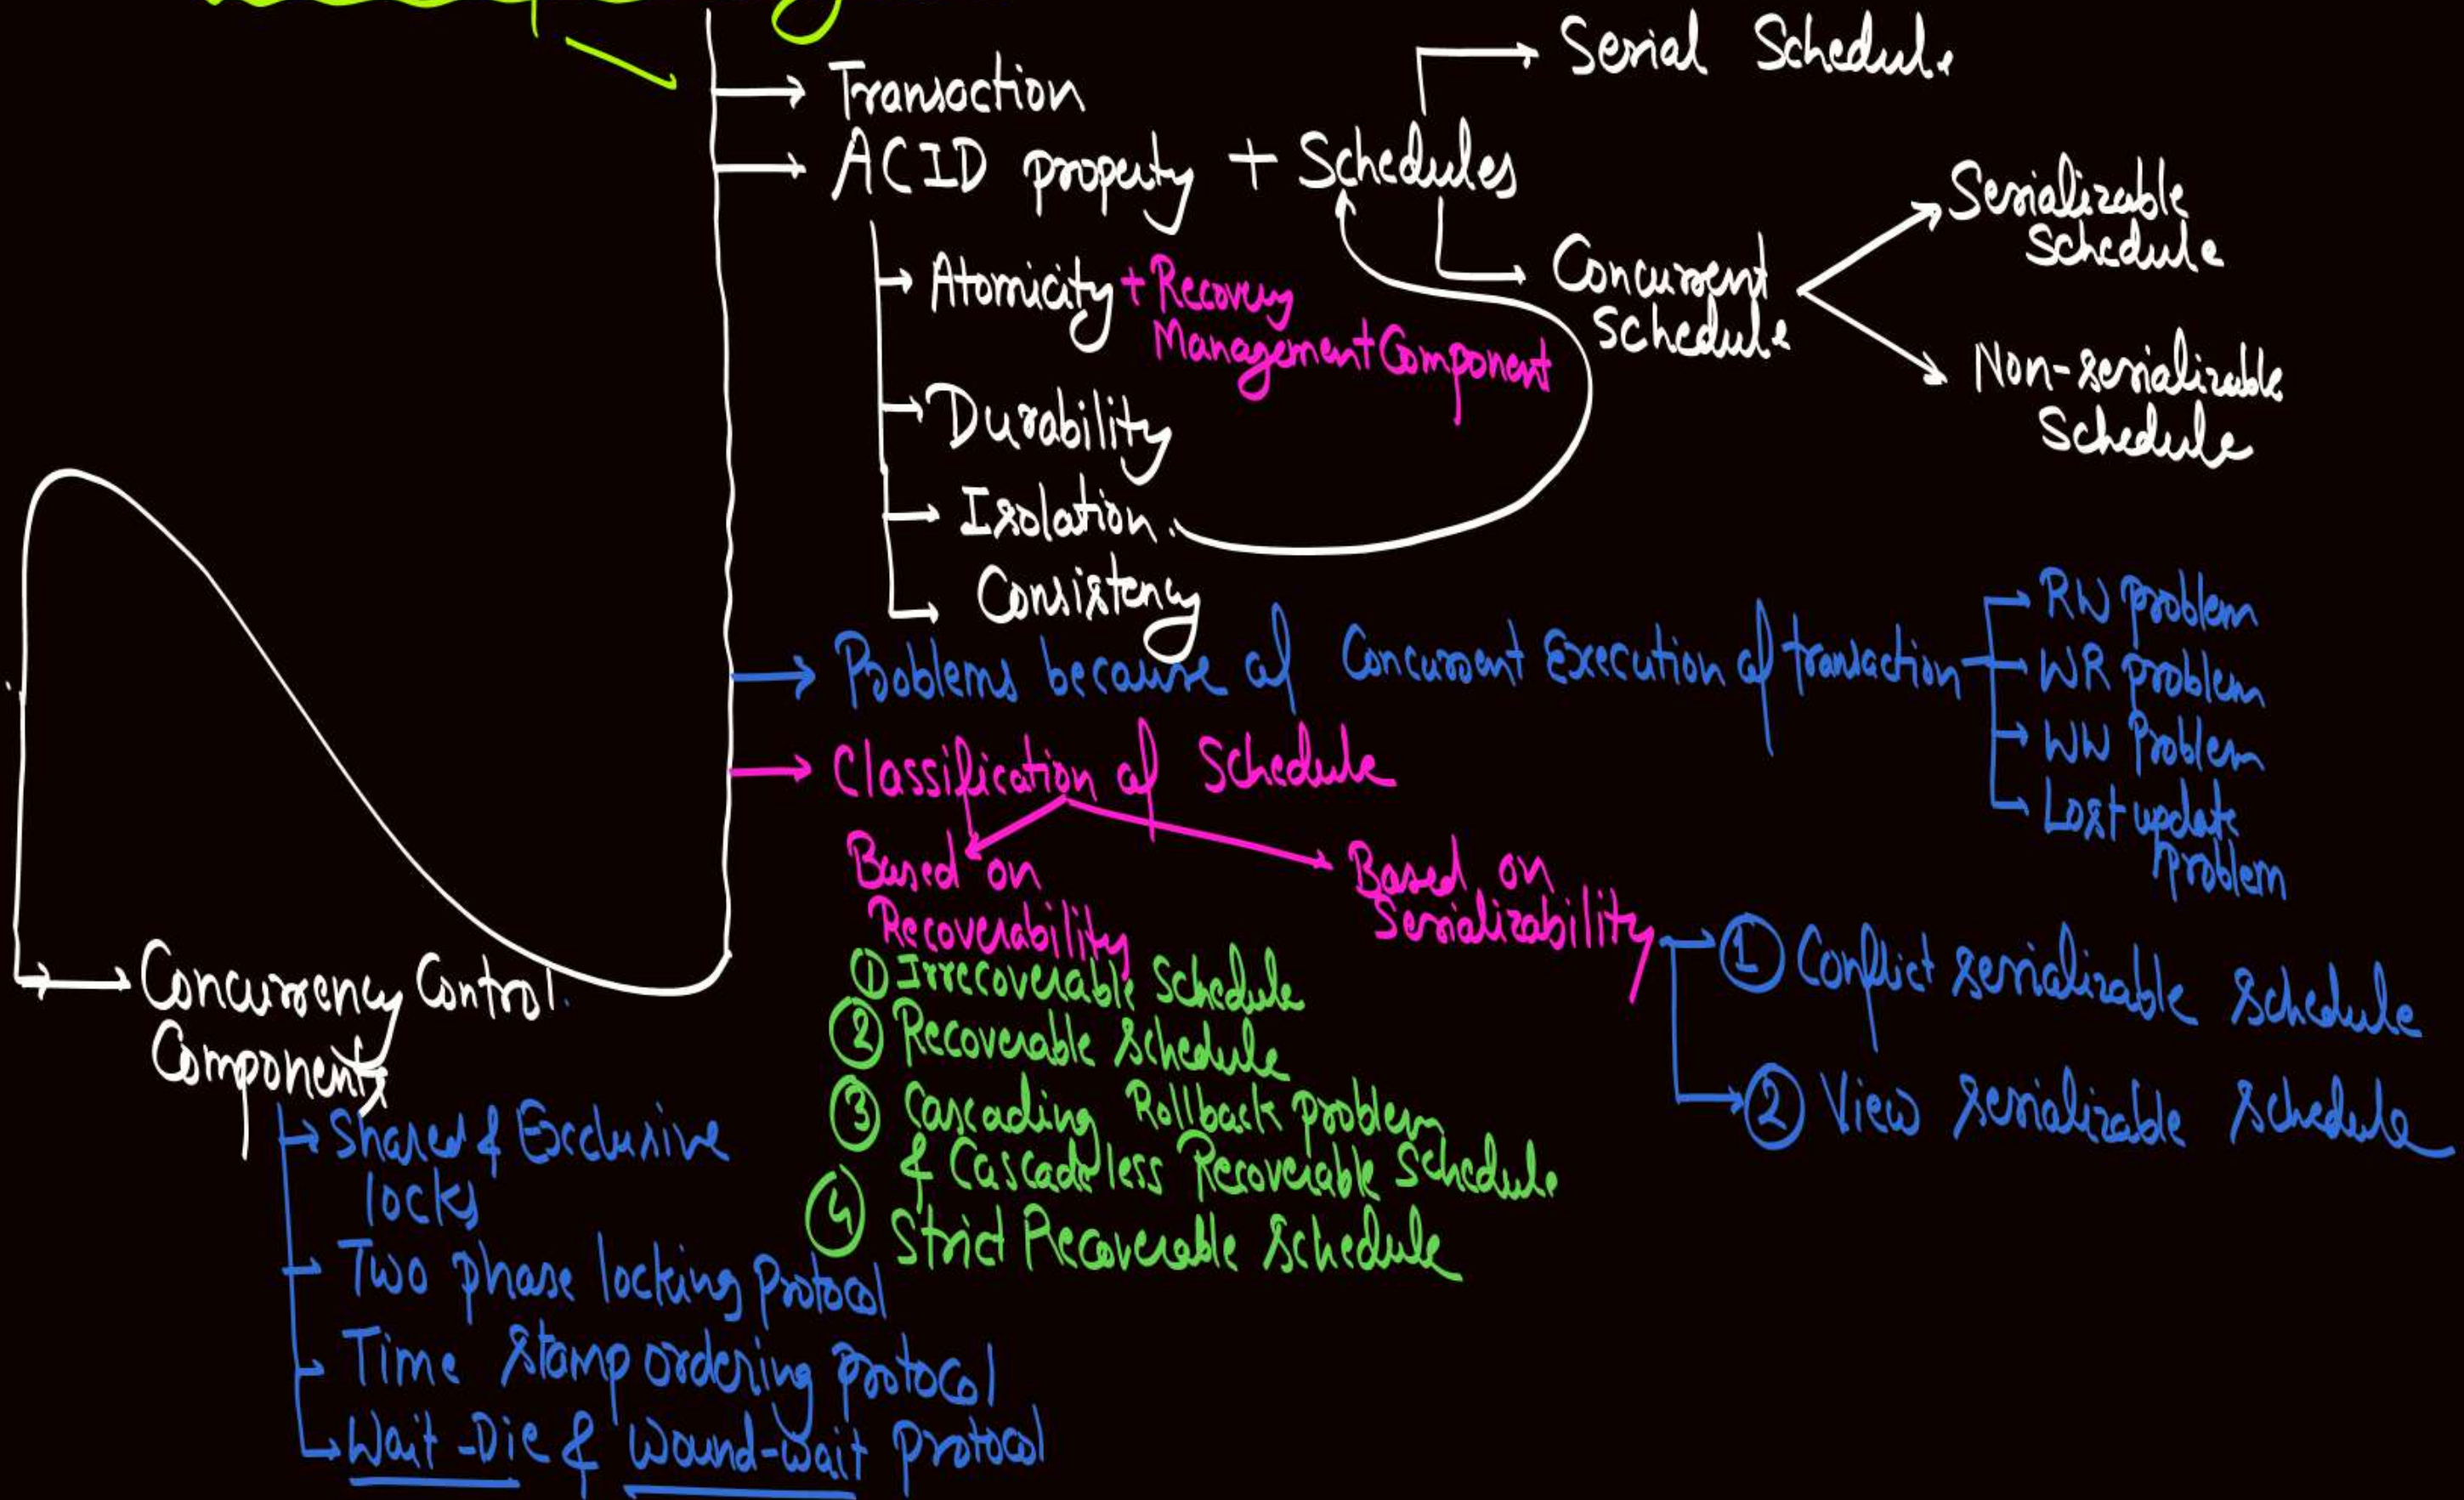 Transaction
ACID property + Schedules
Serial Schedule
Concurrent
Schedule
Serializable
Schedule
Non-serializable
Schedule
Atomicity + Recovery
Management Component
Durability
Isolation.
Consistency
Problems because of Concurrent Execution of transaction
RW problem
WR problem
WW Problem
Lost update
problem
Classification of Schedule
Based on
Recoverability
① Irrecoverable Schedule
② Recoverable Schedule
③ Cascading Rollback problem
& Cascadeless Recoverable Schedule
④ Strict Recoverable Schedule
Based on
Serializability
① Conflict serializable Schedule
② View serializable Schedule
Concurrency Control.
Components
Shared & Exclusive
locks
Two phase locking Protocol
Time Stamp ordering protocol
Wait-Die & Wound-Wait protocol